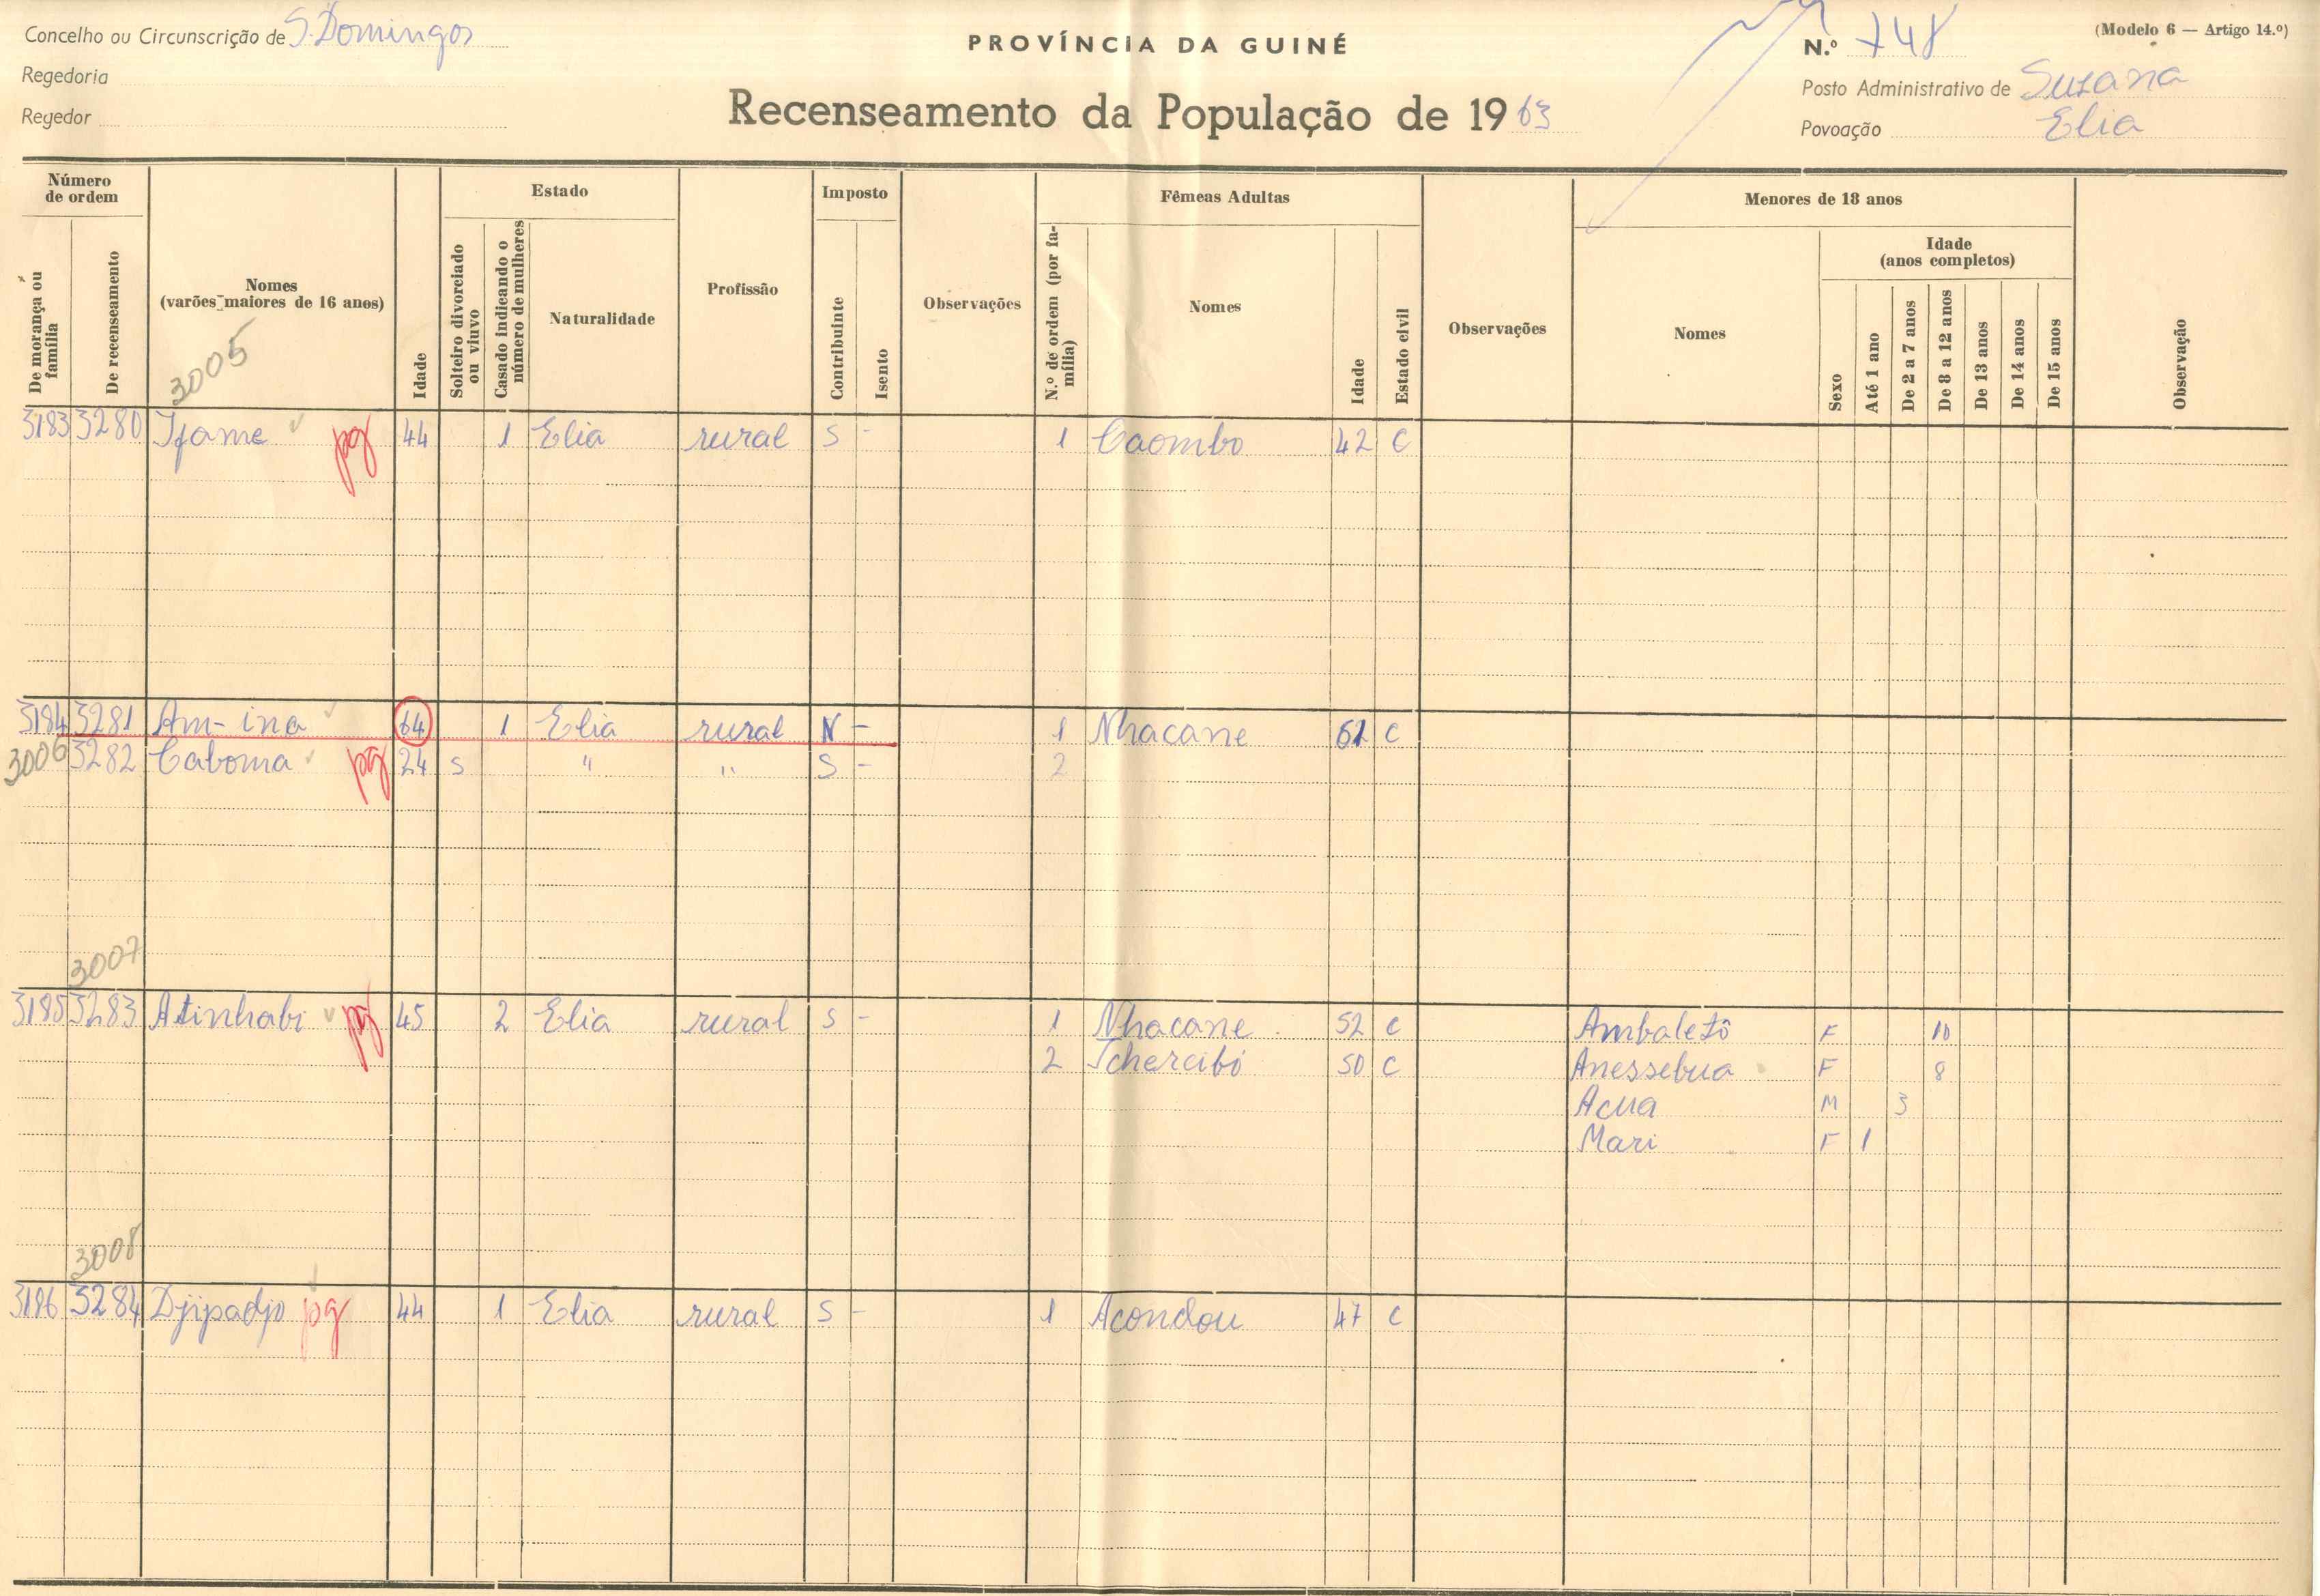 Concelho ou Circunscrição de S. Domingos
Regedoria
Regedor
PROVÍNCIA DA GUINÉ
Recenseamento da População de 1963
(Modelo 6 — Artigo 14.º)
N.º 748
Posto Administrativo de Suzana
Povoação Elia
Número de ordem
De morança ou família
De recenseamento
Nomes
(varões maiores de 16 anos)
3005
Idade
Estado
Solteiro divorciado ou viuvo
Casado indicando o número de mulheres
Naturalidade
Profissão
Imposto
Contribuinte
Isento
Observações
Fêmeas Adultas
N.º de ordem (por família)
Nomes
Idade
Estado civil
Observações
Menores de 18 anos
Nomes
Sexo
Idade
(anos completos)
Até 1 ano
De 2 a 7 anos
De 8 a 12 anos
De 13 anos
De 14 anos
De 15 anos
Observação
3183 3280 Ifame pg 44 1 Elia rural S - 1 Caombo 42 C
3184 3281 Am-ina 64 1 Elia rural N - 1 Nhacane 61 C
3006 3282 Caboma pg 24 S " " S - 2
3007
3185 3283 Atinhabi pg 45 2 Elia rural S - 1 Nhacane 52 C Ambaletô F 10
2 Tchercibó 50 C Anessebua F 8
Acua M 3
Mari F 1
3008
3186 3284 Djipadjo pg 44 1 Elia rural S - 1 Acondou 47 C